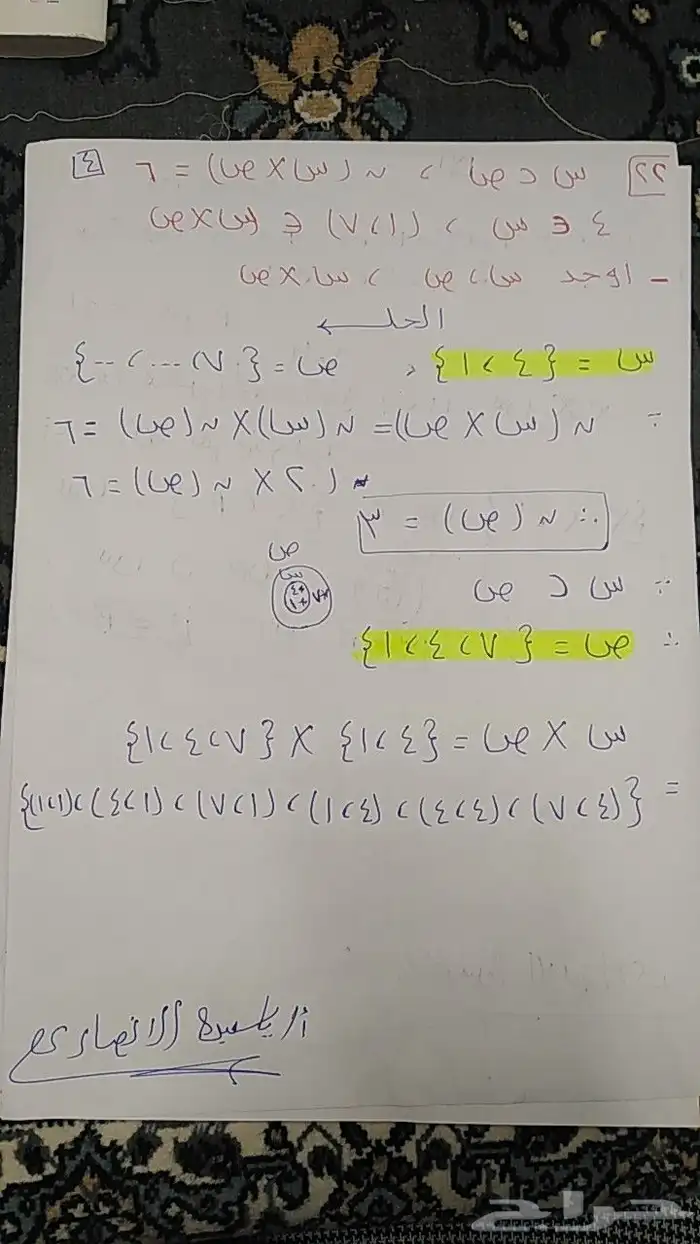 ٢٢ س ⊂ ص ، ن (س × ص) = ٦ ٤
٤ ∈ س ، (١،٧) ∈ س × ص
- اوجد س ، ص ، س × ص
الحل ←
س = {٤ ، ١} ، ص = {٧ ، ... ، ...}
∵ ن (س × ص) = ن (س) × ن (ص) = ٦
٢ × ن (ص) = ٦
∴ ن (ص) = ٣
ص
س
٤ ١ ٧
∵ س ⊂ ص
∴ ص = {٧ ، ٤ ، ١}
س × ص = {٤ ، ١} × {٧ ، ٤ ، ١}
= {(٤ ، ٧) ، (٤ ، ٤) ، (٤ ، ١) ، (١ ، ٧) ، (١ ، ٤) ، (١ ، ١)}
الانصاري
حراج